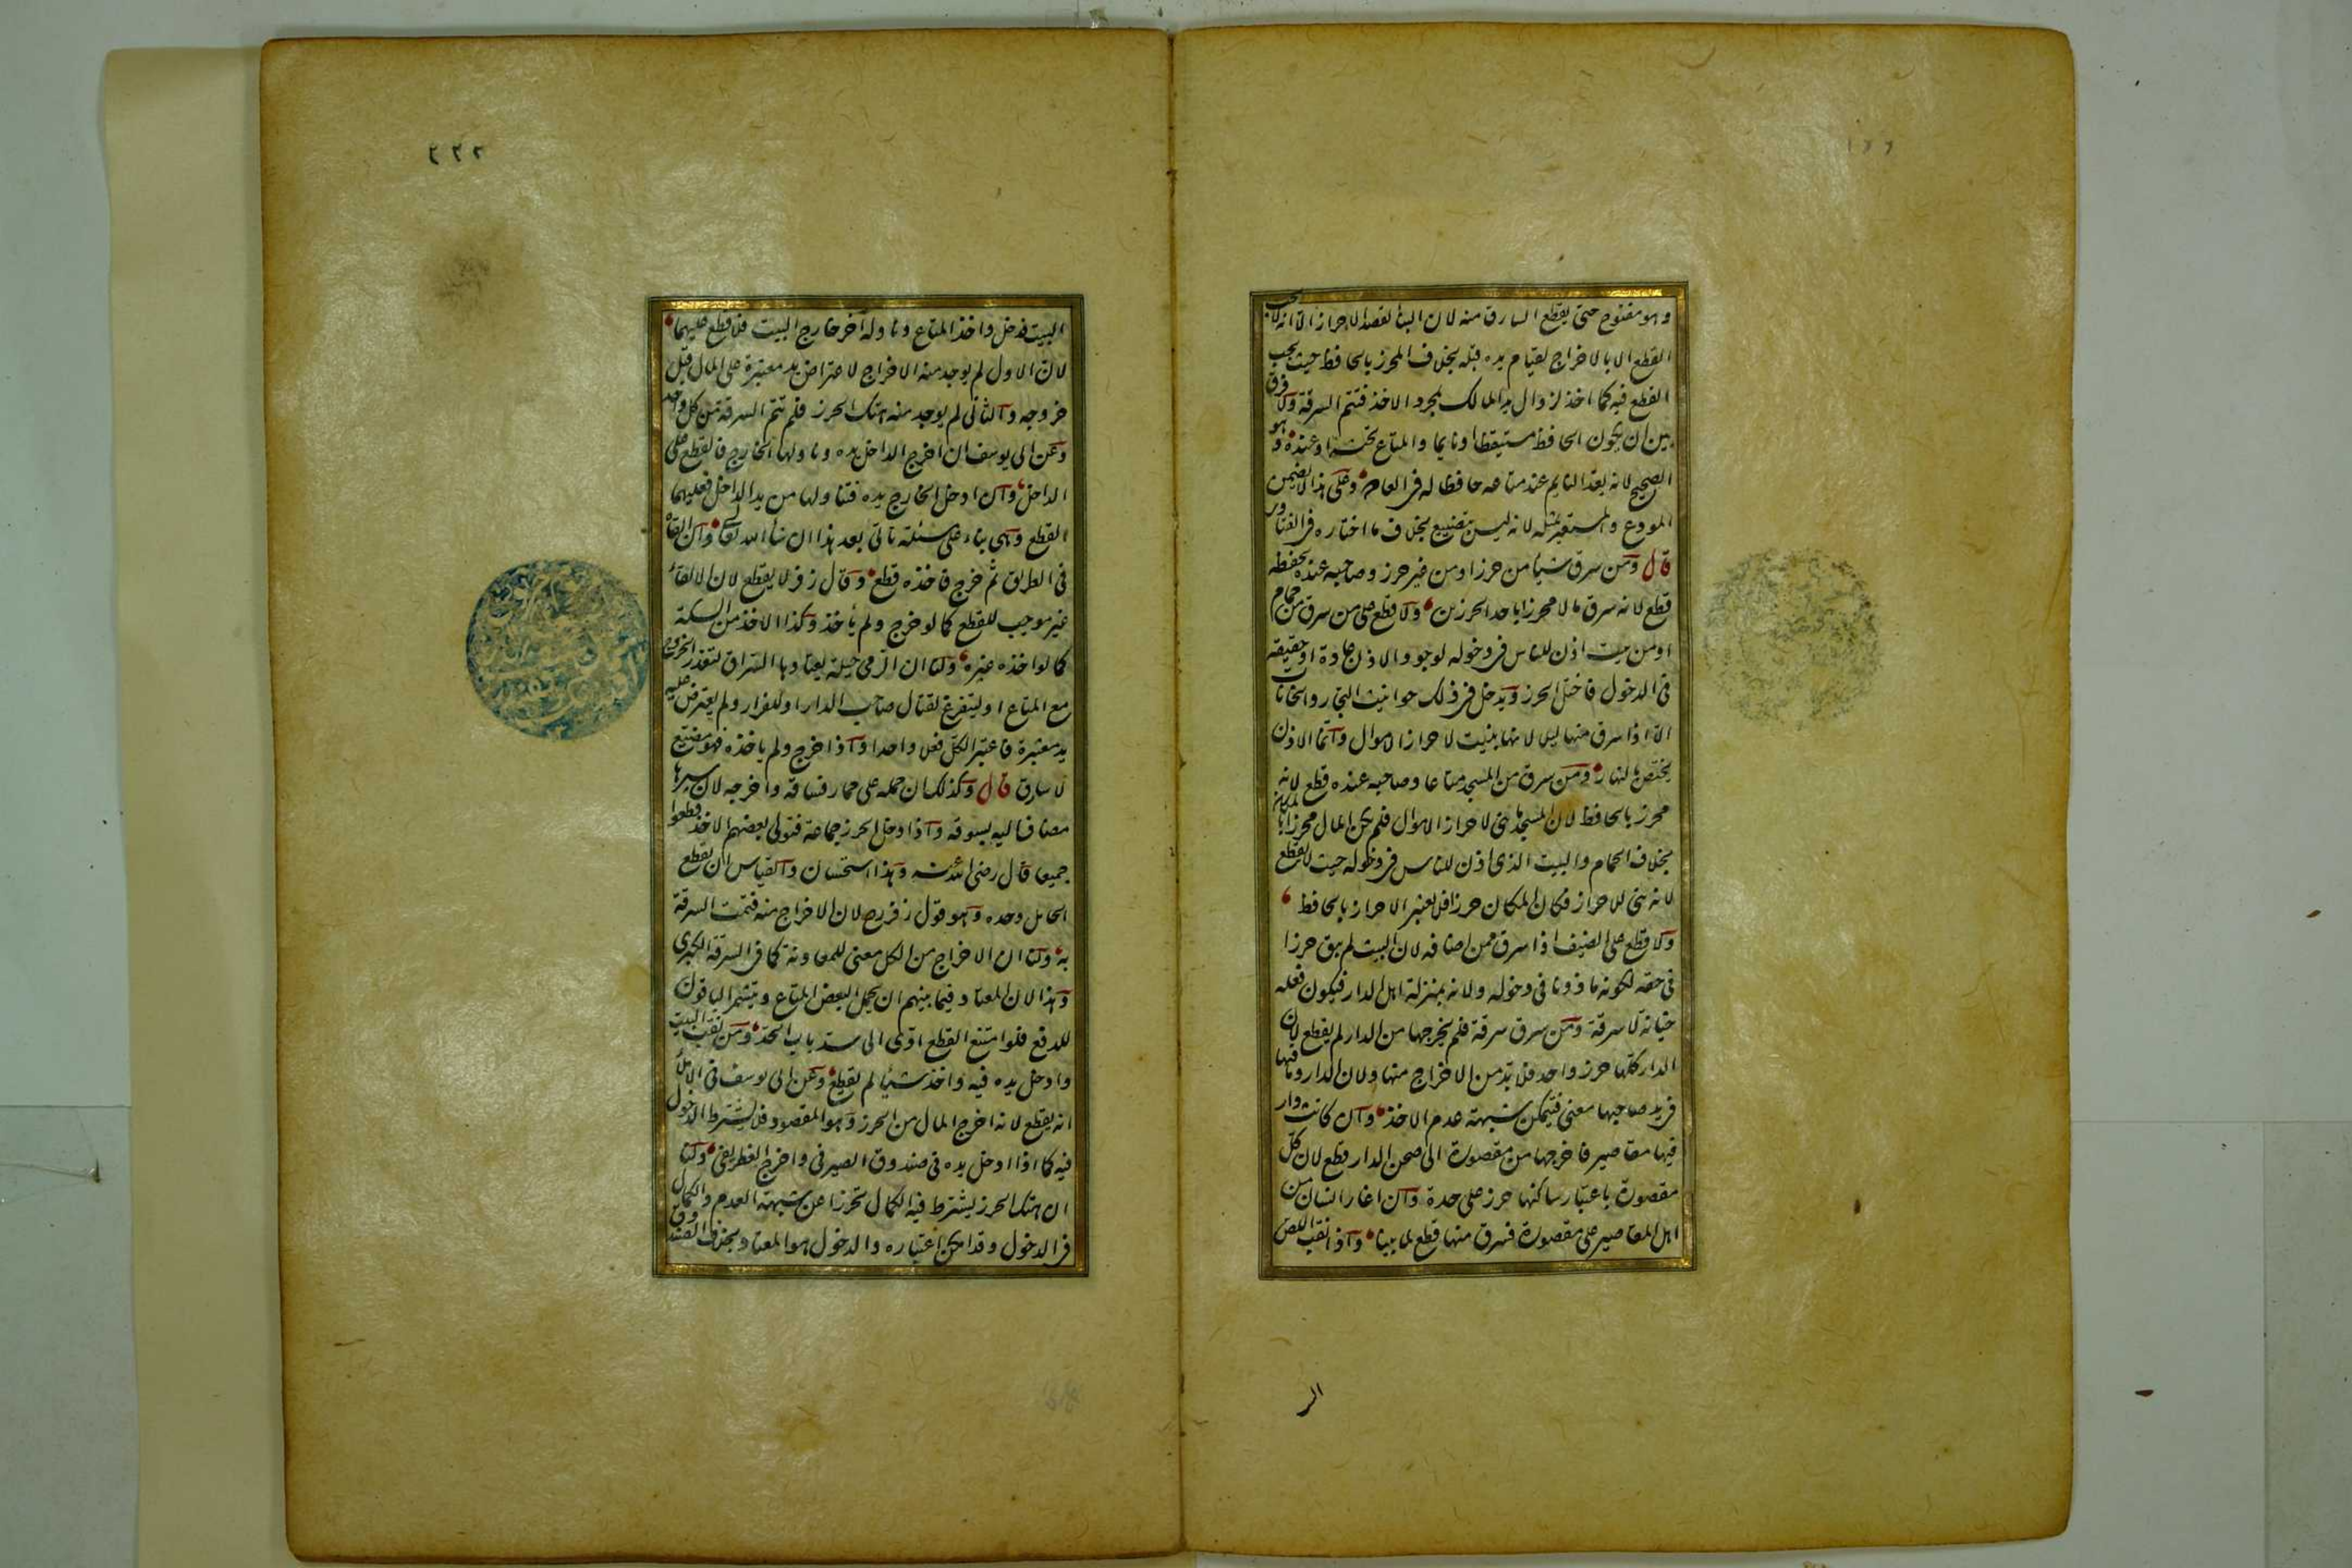 وهو مفتوح حتى يقطع السارق منه لان البناء لقصد الاحراز الا انه لا يجب
القطع الا بالاخراج لقيام يده قبله بخلاف المحرز بالحافظ حيث يجب
القطع فيه كما اخذ لزوال يد المالك بمجرد الاخذ فتتم السرقة ولا فرق
بين ان يكون الحافظ مستيقظا او نايما والمتاع تحته او عنده وهو
الصحيح لانه يعد النايم عند متاعه حافظا له فى العادة وعلى هذا لا يضمن
المودع والمستعير بمثله لانه ليس بتضييع بخلاف ما اختاره فى الفتاوى
قال ومن سرق شيئا من حرز او من غير حرز وصاحبه عنده يحفظه
قطع لانه سرق مالا محرزا باحد الحرزين ولا قطع على من سرق من حمام
او من بيت اذن للناس فى دخوله لوجود الاذن عادة او حقيقة
فى الدخول فاختل الحرز ويدخل فى ذلك حوانيت التجار والخانات
الا اذا سرق منها ليلا لانها بنيت لاحراز الاموال وانما الاذن
يختص بالنهار ومن سرق من المسجد متاعا وصاحبه عنده قطع لانه
محرز بالحافظ لان المسجد ما بنى لاحراز الاموال فلم يكن المال محرزا بالمكان
بخلاف الحمام والبيت الذى اذن للناس فى دخوله حيث لا يقطع
لانه بنى للاحراز فكان المكان حرزا فلا يعتبر الاحراز بالحافظ
ولا قطع على الضيف اذا سرق ممن اضافه لان البيت لم يبق حرزا
فى حقه لكونه ماذونا فى دخوله ولانه بمنزلة اهل الدار فيكون فعله
خيانة لا سرقة ومن سرق سرقة فلم يخرجها من الدار لم يقطع لان
الدار كلها حرز واحد فلا بد من الاخراج منها ولان الدار وما فيها
فى يد صاحبها معنى فتتمكن شبهة عدم الاخذ وان كانت دار
فيها مقاصير فاخرجها من مقصورة الى صحن الدار قطع لان كل
مقصورة باعتبار ساكنها حرز على حدة وان اغار انسان من
اهل المقاصير على مقصورة فسرق منها قطع لما بينا واذا نقب اللص
٢٢٢
البيت فدخل واخذ المتاع وناوله آخر خارج البيت فلا قطع عليهما
لان الاول لم يوجد منه الاخراج لاعتراض يد معتبرة على المال قبل
خروجه والثانى لم يوجد منه هتك الحرز فلم تتم السرقة من كل واحد
وعن ابى يوسف ان اخرج الداخل يده وناولها الخارج فالقطع على
الداخل وان ادخل الخارج يده فتناولها من يد الداخل فعليهما
القطع وهى بناء على مسئلة تاتى بعد هذا ان شاء الله تعالى وان القاه
فى الطريق ثم خرج فاخذه قطع وقال زفر لا يقطع لان الالقاء
غير موجب للقطع كما لو خرج ولم يأخذ وكذا الاخذ من السكة
كما لو اخذه غيره ولنا ان الرمى حيلة يعتادها السراق لتعذر الخروج
مع المتاع او ليتفرغ لقتال صاحب الدار او للفرار ولم يعترض عليه
يد معتبرة فاعتبر الكل فعلا واحدا واذا خرج ولم ياخذه فهو مضيع
لا سارق قال وكذلك ان حمله على حمار فساقه واخرجه لان سيرها
مضاف اليه بسوقه واذا دخل الحرز جماعة فتولى بعضهم الاخذ قطعوا
جميعا قال رضى الله عنه وهذا استحسان والقياس ان يقطع
الحامل وحده وهو قول زفر رح لان الاخراج منه فتمت السرقة
به ولنا ان الاخراج من الكل معنى للمعاونة كما فى السرقة الكبرى
وهذا لان المعتاد فيما بينهم ان يحمل البعض المتاع ويتشمر الباقون
للدفع فلو امتنع القطع ادى الى سد باب الحد ومن نقب البيت
وادخل يده فيه واخذ شيئا لم يقطع وعن ابى يوسف فى الاملاء
انه يقطع لانه اخرج المال من الحرز وهو المقصود فلا يشترط الدخول
فيه كما اذا ادخل يده فى صندوق الصيرفى واخرج الغطريفى ولنا
ان هتك الحرز يشترط فيه الكمال تحرزا عن شبهة العدم والكمال
فى الدخول وقد امكن اعتباره والدخول هو المعتاد بخلاف الصندوق